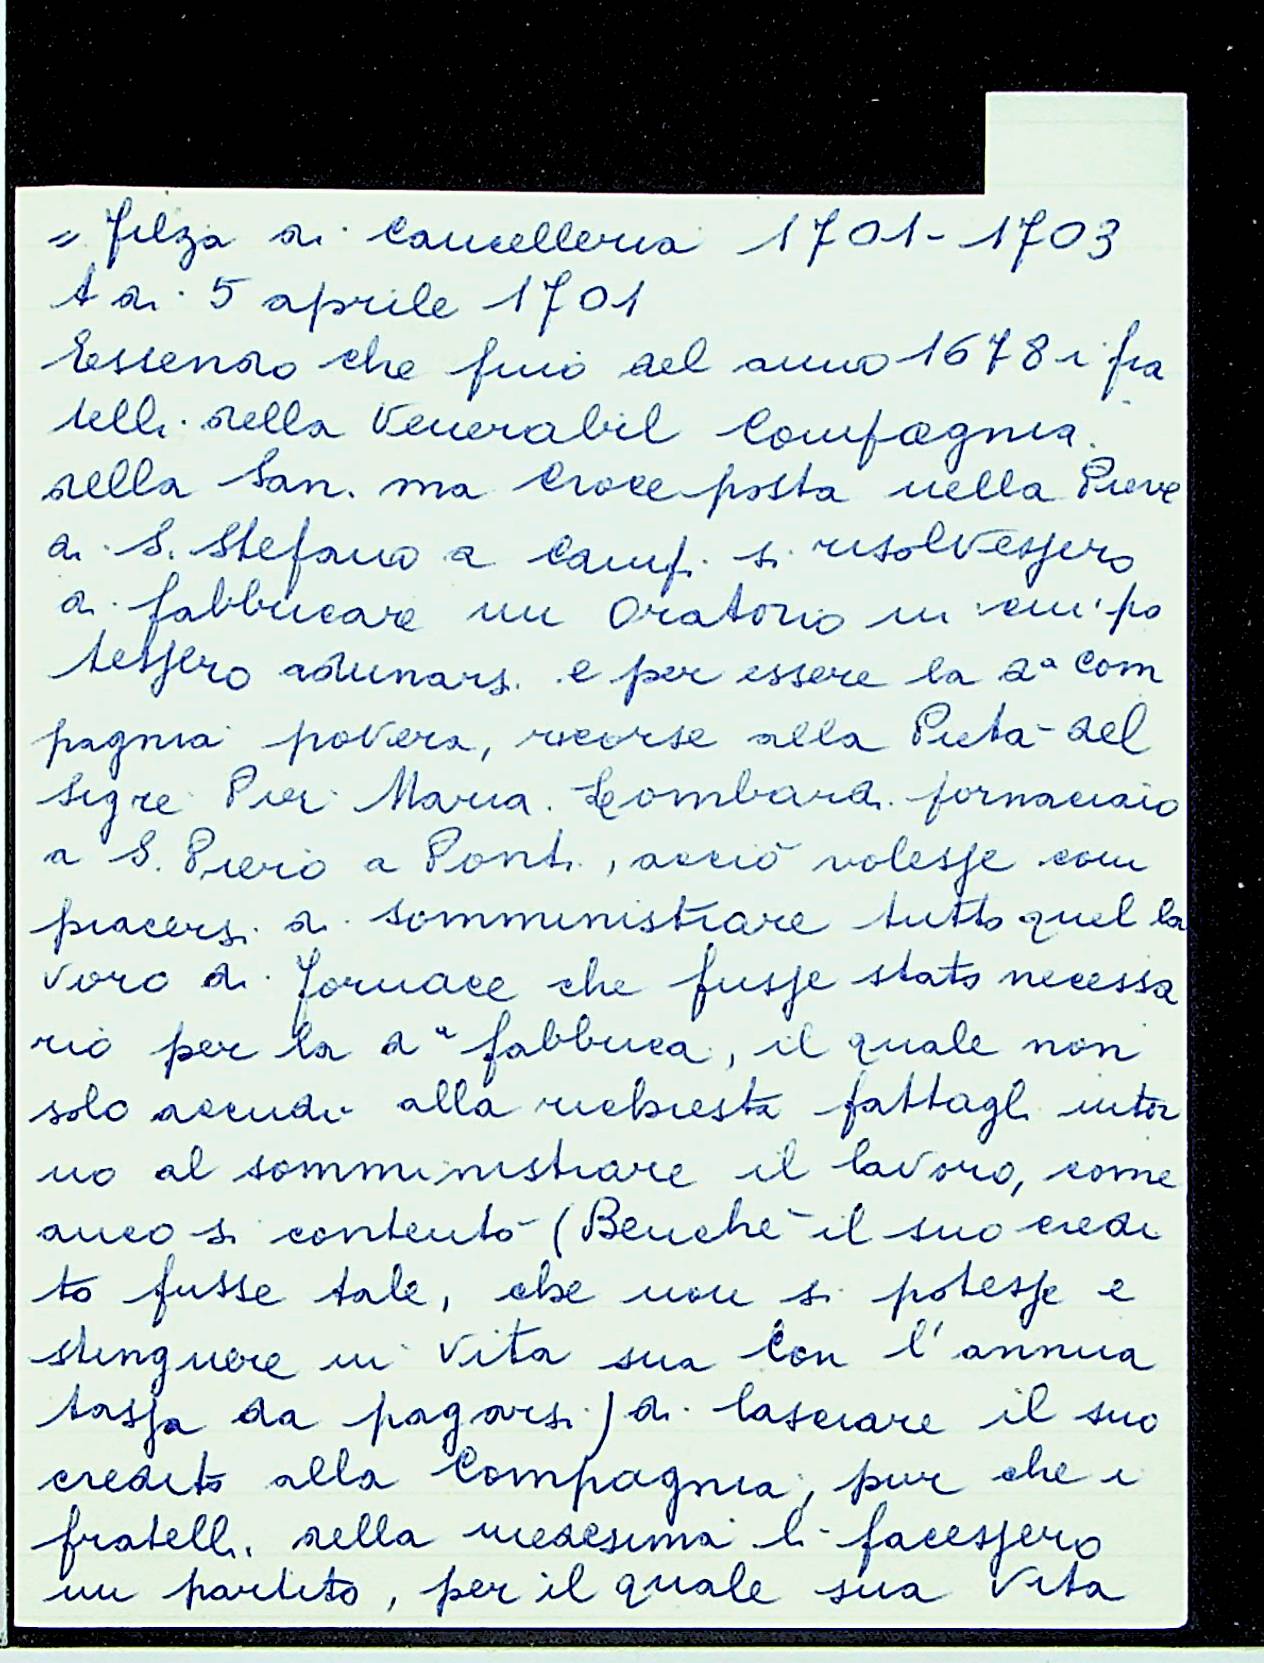 " Filza di Cancelleria 1701-1703
A di 5 aprile 1701
Essendo che fino del anno 1678 i fra
telli della Venerabil Compagnia
della San.ma Croce posta nella Pieve
di S. Stefano a Campi si risolvessero
di fabbricare un Oratorio in cui po
tessero adunarsi e per essere la da Com
pagnia povera, ricorse alla Pietà del
Sigre Pier Maria Lombardi fornaciaio
a S. Piero a Ponti, acciò volesse com
piacersi di somministrare tutto quel la
voro di fornace che fusse stato necessa
rio per la da fabbrica, il quale non
solo accudì alla richiesta fattagli intor
no al somministrare il lavoro, come
anco si contentò (Benchè il suo credi
to fusse tale, che non si potesse e
stinguere in vita sua con l'annua
tassa da pagarsi) di lasciare il suo
credito alla Compagnia, pur che i
fratelli della medesima li facessero
un partito, per il quale sua vita